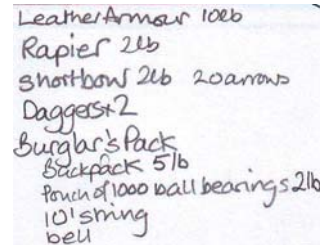 Leather Armour 10lb
Rapier 2lb
Shortbow 2lb 20 arrows
Daggers x2
Burglar's Pack
Backpack 5lb
Pouch of 1000 ball bearings 2lb
10' string
bell